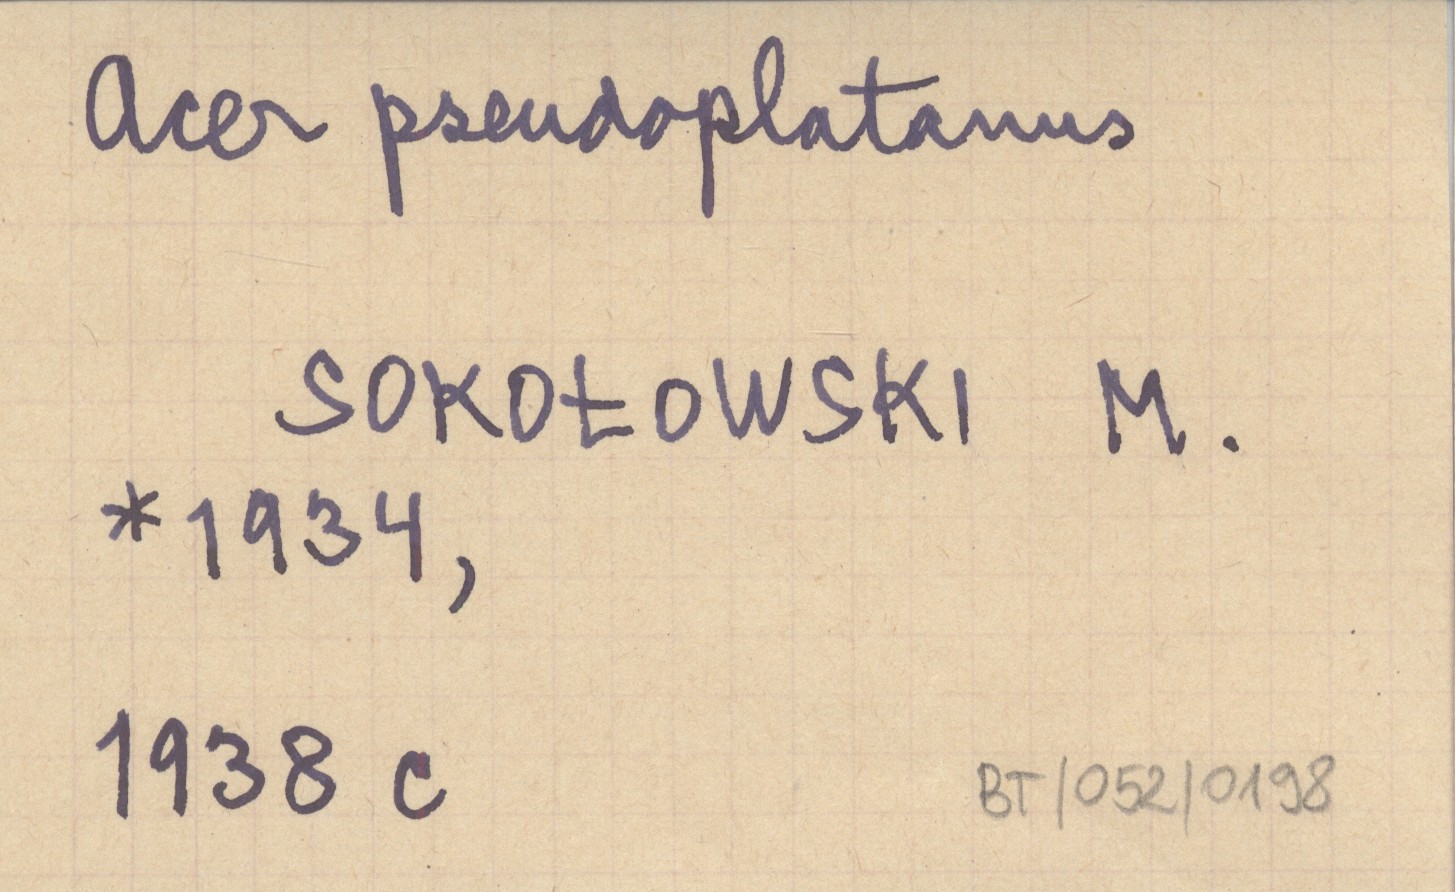 Acer pseudoplatanus
SOKOŁOWSKI M.
*1934,
1938 c
BT/052/0198